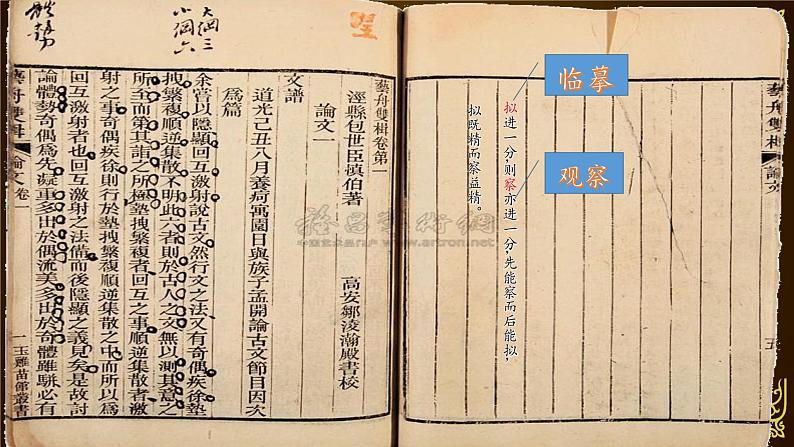 临摹
观察
拟进一分,则察亦进一分,先能察而后能拟,
拟既精而察益精。
藝舟雙楫
論文
大綱三
小綱六
藝舟雙楫卷第一
涇縣包世臣慎伯著 高安鄒淩瀚殿書校
論文一
文譜
道光己丑八月養疴寓園日與族子孟開論古文節目因次
為篇
余嘗以隱顯回互激射說古文然行文之法又有奇偶疾徐墊
拽繁複順逆集散不明此六者則於古人之文無以測其意之
所至而第其詣之所極墊拽繁複者回互之事順逆集散者激
射之事奇偶疾徐則行於墊拽繁複順逆集散之中而所以為
回互激射者也回互激射之法備而後隱顯之義見矣是故討
論體勢奇偶為先凝重多出於偶流美多出於奇體雖駢必有
藝舟雙楫 論文 卷一 一 玉雞苗館叢書
雅昌藝術網
www.artron.net